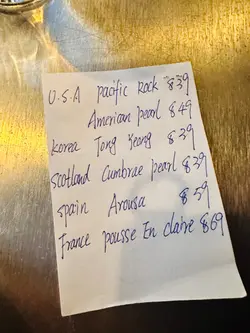 U.S.A pacific Rock $39
American pearl $49
Korea Tong Yeong $39
Scotland Cumbrae pearl $39
Spain Arousa $59
France pousse En claire $69